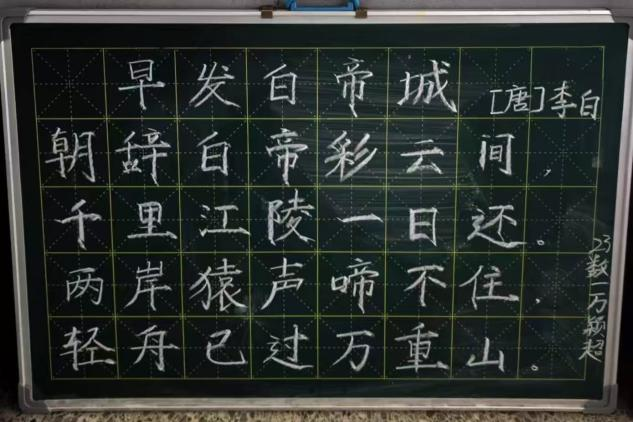 早发白帝城
[唐]李白
朝辞白帝彩云间，
千里江陵一日还。
两岸猿声啼不住，
轻舟已过万重山。
23数一万颖超